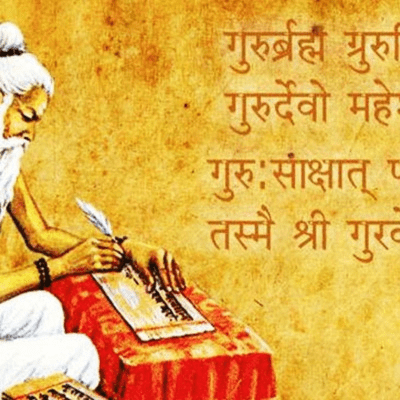 गुरुर्ब्रह्म ग्रुरु
गुरुर्देवो महे
गुरु:सांक्षात् प
तस्मै श्री गुरवे